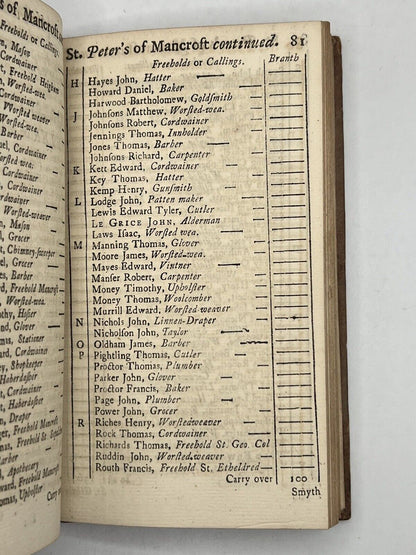 s of Mancroft
or Callings.
, Mason
Cordwainer
, Freehold Heigham
Worsted-wea.
Worsted weaver
, Barber
Cordwainer
Worsted-wea.
Cordwainer
st, Chimney-sweeper
Grocer
es, Barber
rd, Freehold Mancroft
n, Worsted-wea.
othy, Hosier
nd, Glover
omas, Stationer
ard, Cordwainer
ey, Shopkeeper
Haberdasher
, Grocer
n, Draper
Haberdasher
, Freehold
, Freehold St.
, Barber
, Apothecary
, Freehold Mancroft
omas, Upholster
St. Peter's of Mancroft continued. 81
Freeholds or Callings. Branth
H Hayes John, Hatter
Howard Daniel, Baker
Harwood Bartholomew, Goldsmith
J Johnsons Matthew, Worsted-wea.
Johnsons Robert, Cordwainer
Jennings Thomas, Innholder
Jones Thomas, Barber
Johnsons Richard, Carpenter
K Kett Edward, Cordwainer
Key Thomas, Hatter
Kemp Henry, Gunsmith
L Lodge John, Patten maker
Lewis Edward Tyler, Cutler
LE GRICE JOHN, Alderman
Laws Isaac, Worsted wea.
M Manning Thomas, Glover
Moore James, Worsted-wea.
Mayes Edward, Vintner
Manser Robert, Carpenter
Money Timothy, Upholster
Money Thomas, Woolcomber
Murrill Edward, Worsted-weaver
N Nichols John, Linnen-Draper
Nicholson John, Taylor
O Oldham James, Barber
P Pightling Thomas, Cutler
Proctor Thomas, Plumber
Parker John, Glover
Proctor Francis, Baker
Page John, Plumber
Power John, Grocer
R Riches Henry, Worstedweaver
Rock Thomas, Cordwainer
Richards Thomas, Freehold St. Geo. Col
Ruddin John, Worsted.weaver
Routh Francis, Freehold St. Etheldred
Carry over 100
Smyth